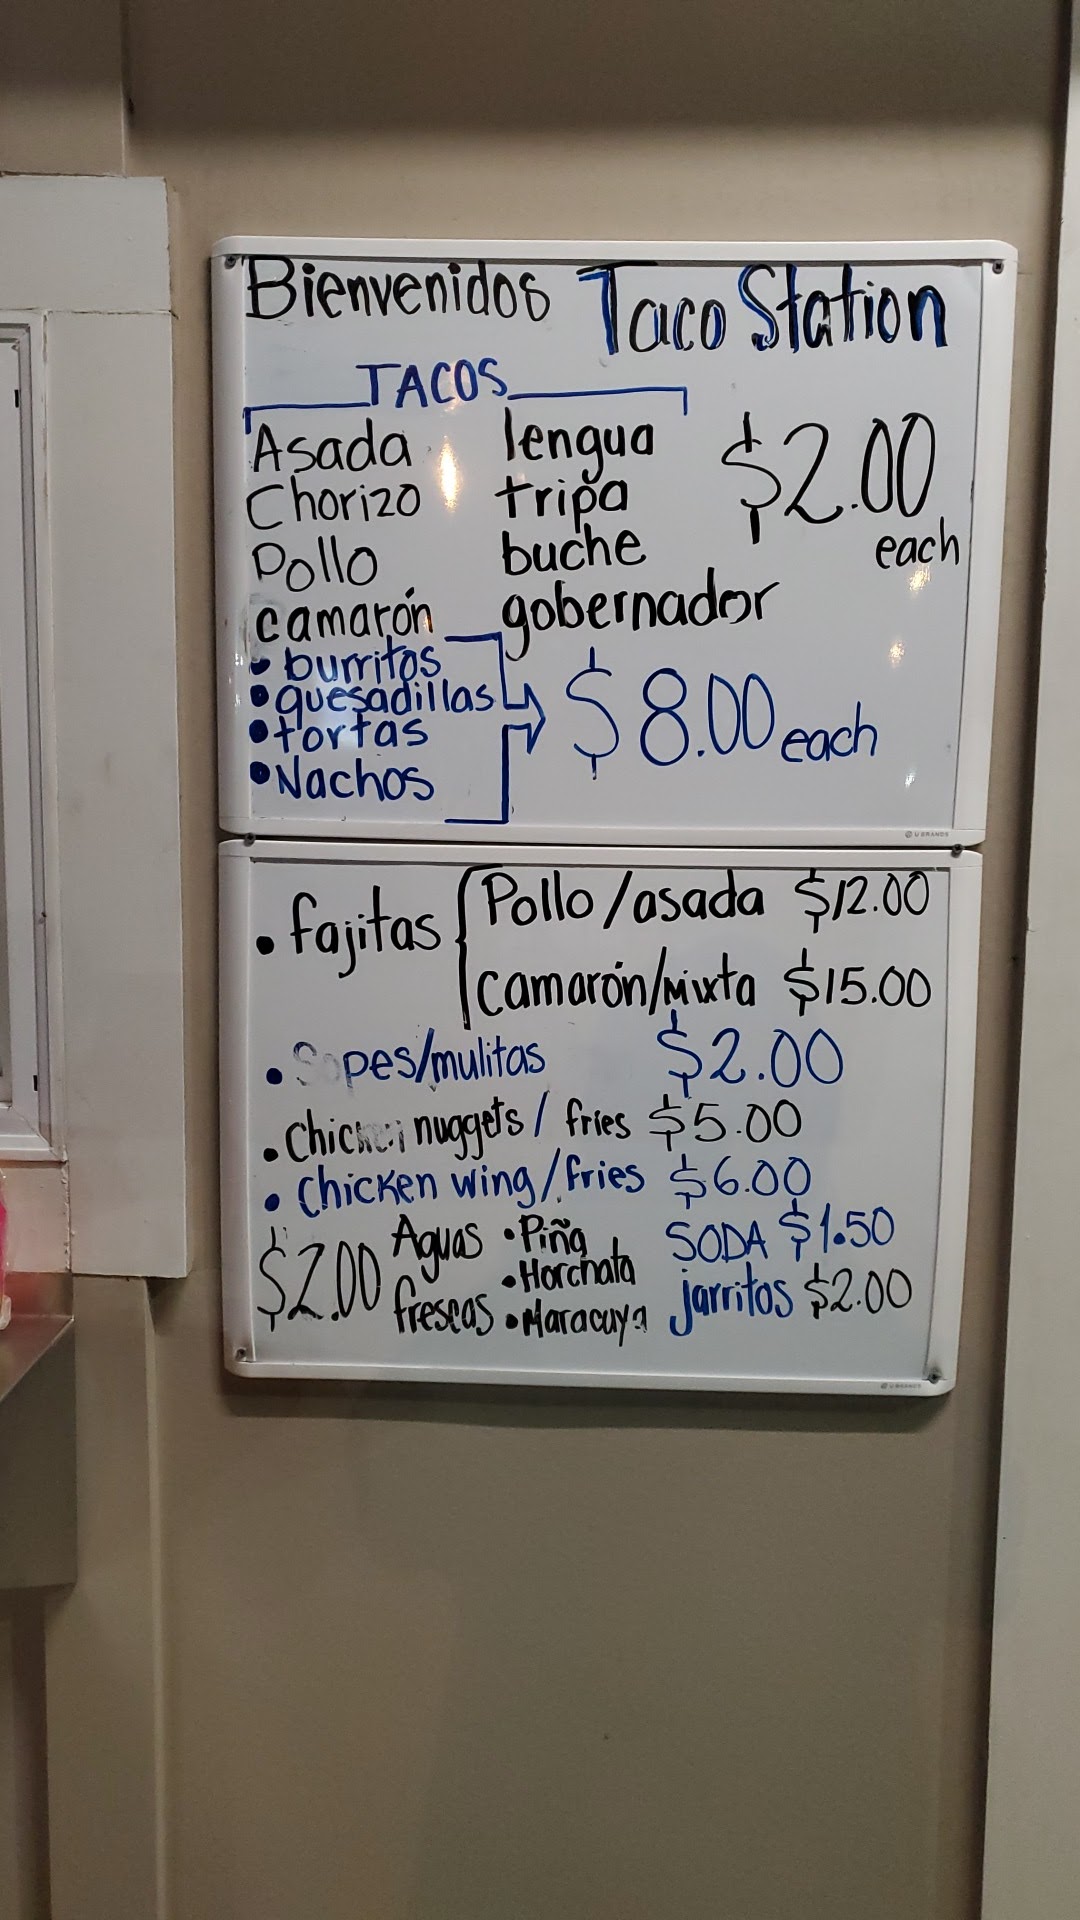 Bienvenidos Taco Station
TACOS
Asada lengua $2.00
Chorizo tripa
Pollo buche each
camarón gobernador
• burritos
• quesadillas
• tortas $8.00 each
• Nachos
U BRANDS
• fajitas Pollo/asada $12.00
camarón/mixta $15.00
• Sopes/mulitas $2.00
• chicken nuggets/ fries $5.00
• chicken wing/fries $6.00
$2.00 Aguas frescas
• Piña
• Horchata
• Maracuya
SODA $1.50
jarritos $2.00
U BRANDS